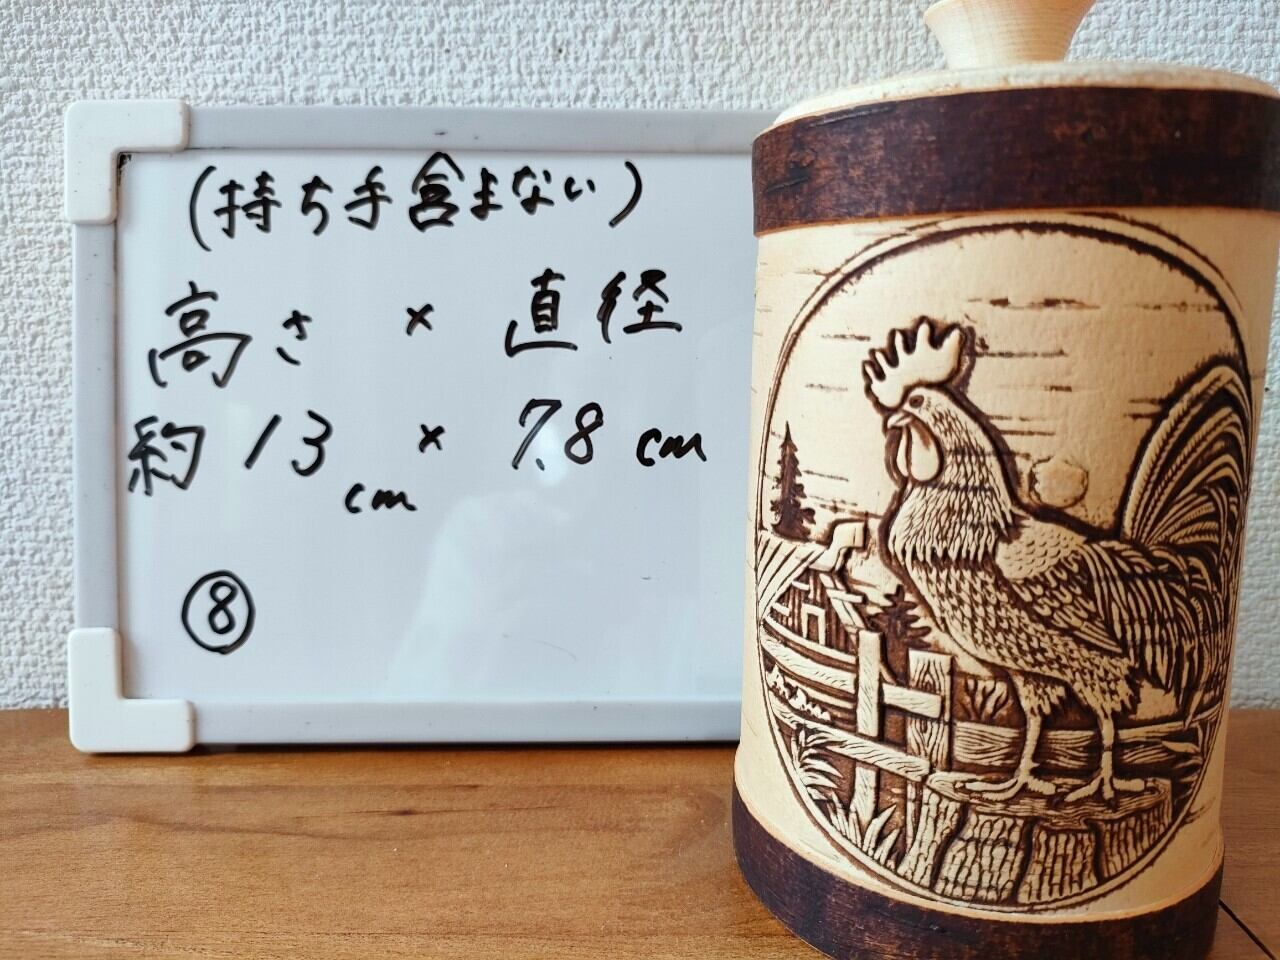 (持ち手含まない)
高さ × 直径
約13cm × 7.8cm
⑧